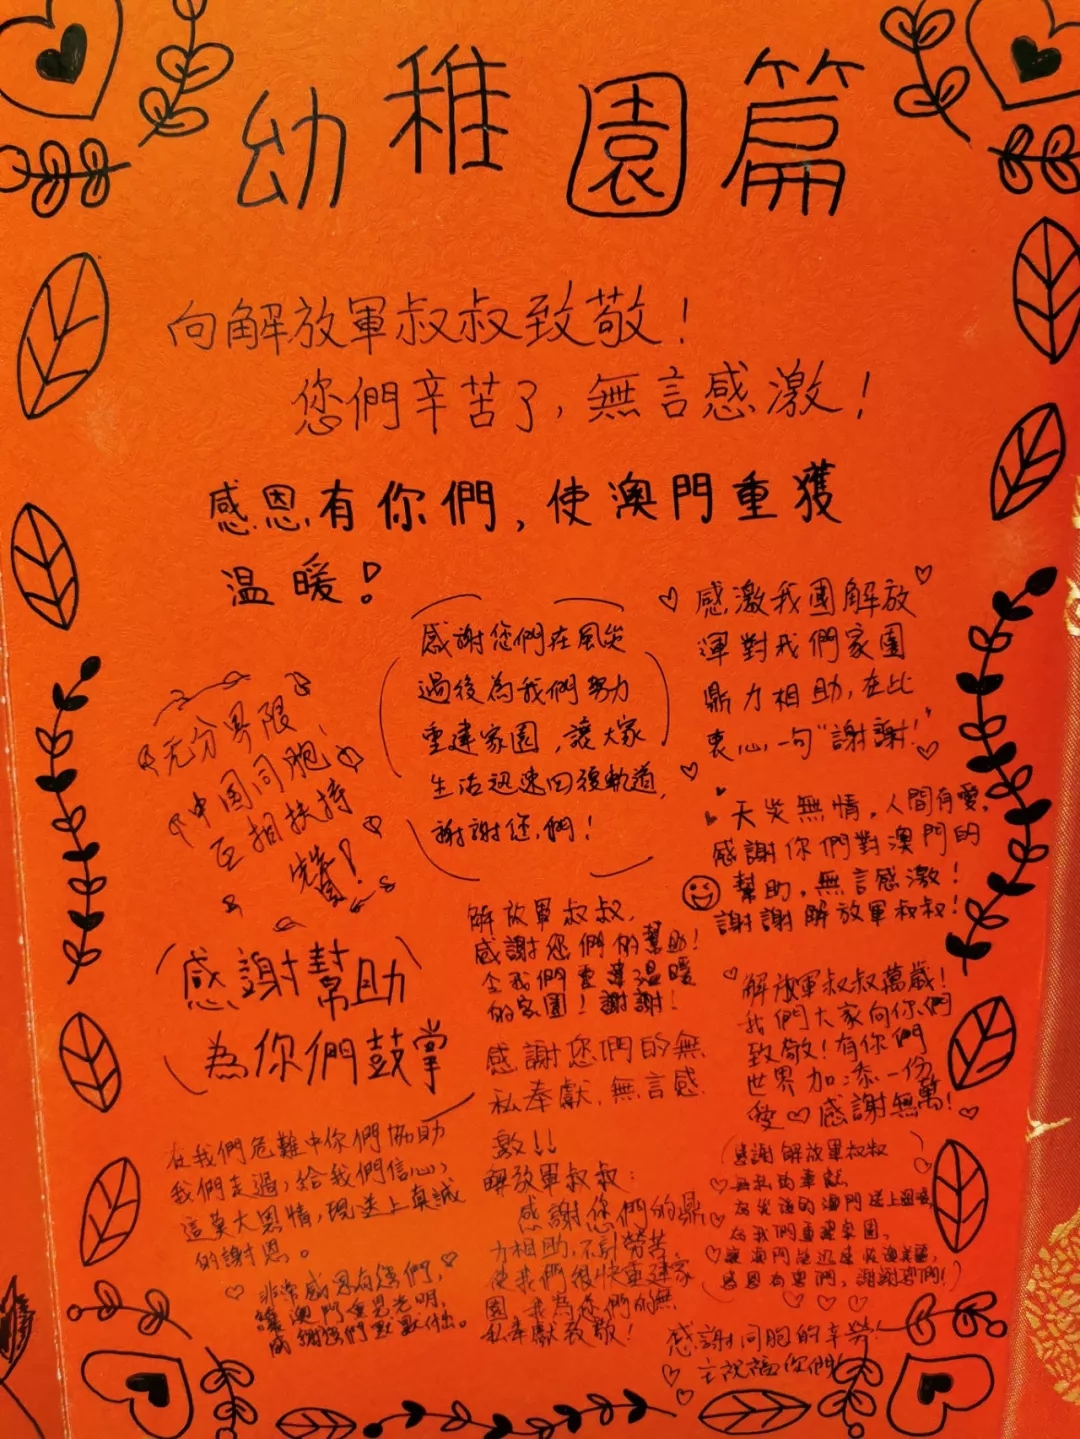 幼稚園篇
向解放軍叔叔致敬！
您們辛苦了，無言感激！
感恩有你們，使澳門重獲
溫暖！
感謝您們在風災
過後為我們努力
重建家園，讓大家
生活迅速回復軌道，
謝謝您們！
感激我國解放
渾對我們家園
鼎力相助，在此
衷心一句“謝謝！”
无分界限，
中国同胞，
互相扶持
天災無情，人間有愛，
感謝你們對澳門的
幫助，無言感激！
謝謝解放軍叔叔！
感謝幫助
為你們鼓掌
解放軍叔叔，
感謝您們的幫助！
令我們重建溫暖
的家園！謝謝！
感謝您們的無
私奉獻，無言感
激！！
解放軍叔叔萬歲！
我們大家向你們
致敬！有你們
世界加添一份
愛♡感謝無萬！
在我們危難中你們協助
我們走過，給我們信心，
這莫大恩情，現送上真誠
的謝恩。
非常感恩有您們，
讓澳門重見光明，
感謝您們默默付出。
解放軍叔叔：
感謝您們的鼎
力相助，不計勞苦
使我們很快重建家
園，我為您們的無
私奉獻致敬！
感謝解放軍叔叔
無私的奉獻，
為災後的澳門送上溫暖，
為我們重建家園，
感謝同胞的辛勞！
主祝福你們！